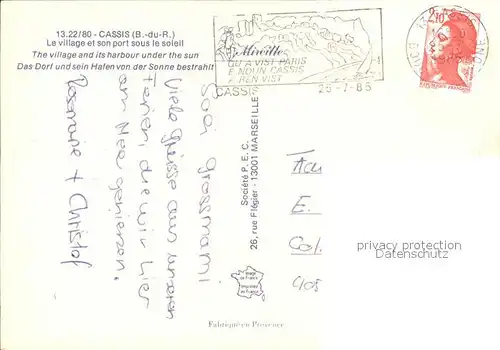 13.22/80 - CASSIS (B.-du-R.)
Le village et son port sous le soleil
The village and its harbour under the sun
Das Dorf und sein Hafen von der Sonne bestrahlt
Mireille
QU A VIST PARIS
E NOUN CASSIS
A REN VIST
CASSIS
25-7-85
2,10
Société P.E.C.
26, rue Flégier - 13001 MARSEILLE
Grossmami
Viele Grüsse aus unseren
Ferien, die wir hier
am Meer geniessen.
Rosmarie + Christof
E.
privacy protection
Datenschutz
Fabriqué en Provence